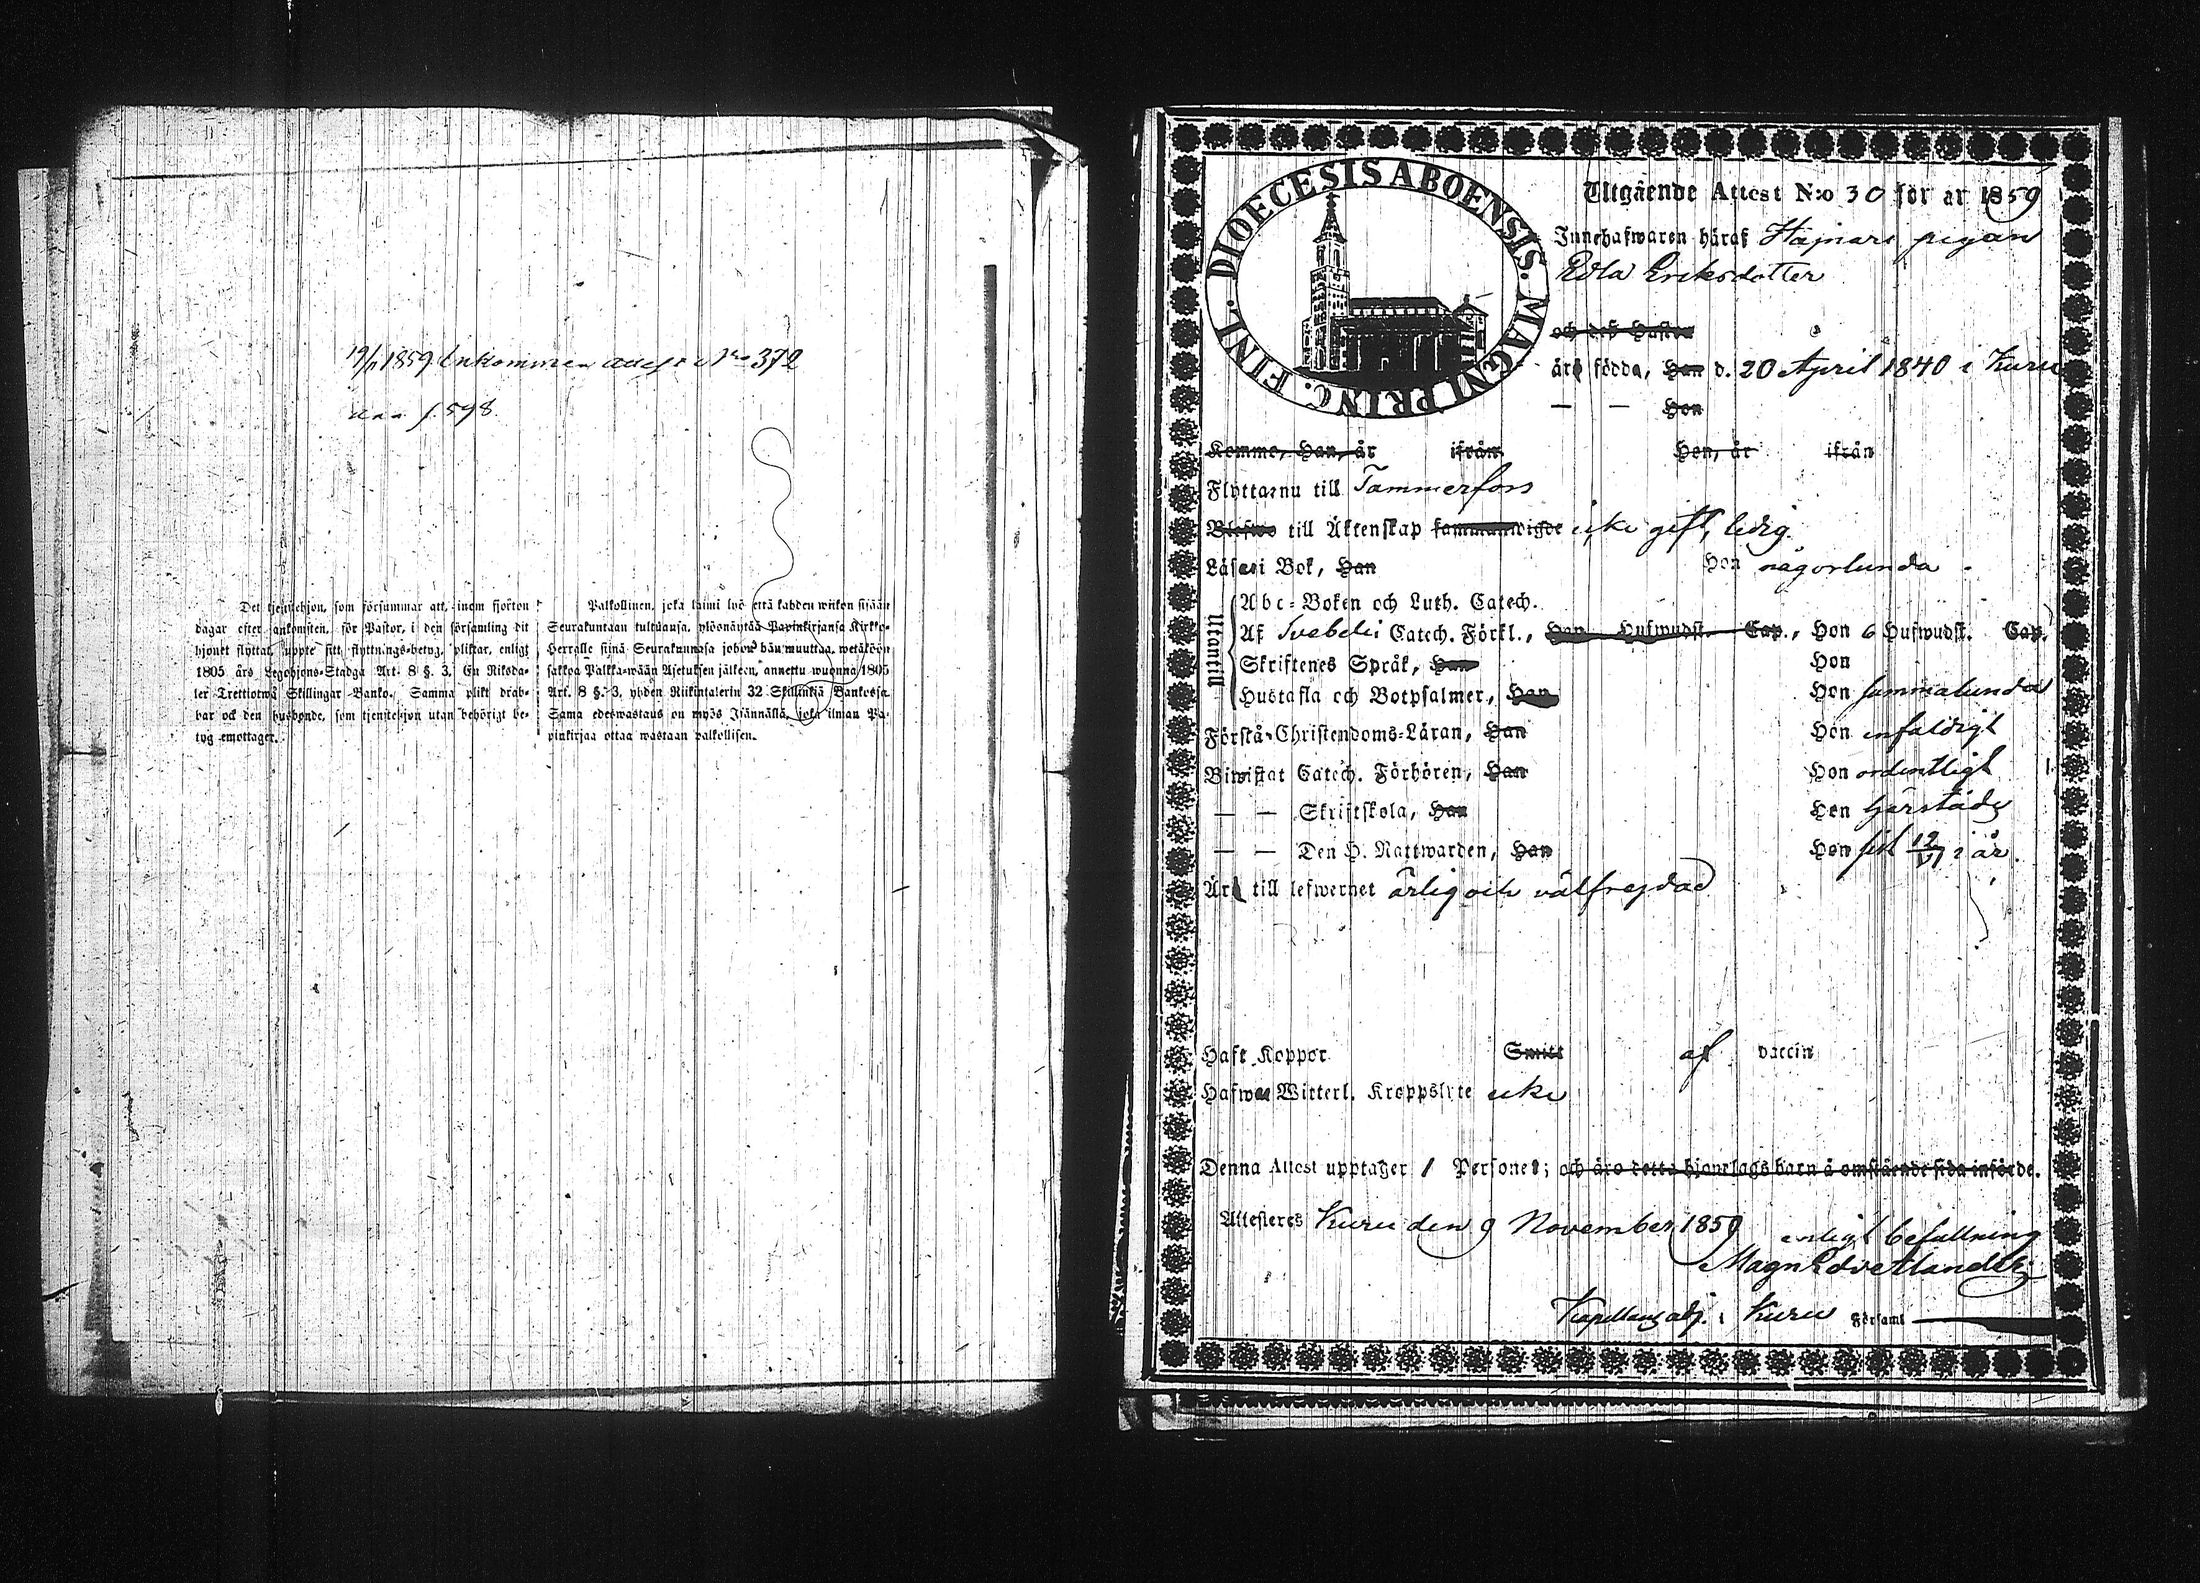 19/11 1859. Inkommen attest No 372
f. 598.
Det tjenstehjon, som försummar att, inom fjorton
dagar efter ankomsten, för Pastor, i den församling dit
hjonet flyttat, uppte sitt flyttnings-betyg, pliktar, enligt
1805 års Legohjons-Stadga Art. 8 §. 3, En Riksda-
ler Trettiotwå Skillingar Banko. Samma plikt drab-
bar ock den husbonde, som tjenstehjon utan behörigt be-
tyg emottager.
Palkollinen, joka laimi lyö että kahden wiikon sisään
Seurakuntaan tultuansa, ylösnäyttää Papinkirjansa Kirkko-
Herralle siinä Seurakunnasa johon hän muuttaa, wetäköön
sakkoa Palkka-wään Asetuksen jälkeen, annettu wuonna 1805
Art. 8 §. 3, yhden Riikintalerin 32 Skillinkiä Bankossa
Sama edeswastaus on myös Isännällä, joka ilman Pa-
pinkirjaa ottaa wastaan palkollisen.
DIOECESIS ABOENSIS. MAGNI PRINC. FINL.
Utgående Attest N:o 30 för år 1859
Innehafwaren häraf pigan
Edla Eriksdotter
och deß Hustru
äro födda, Han d. 20 April 1840 i Kuru
— — Hon
Komme, Han, år ifrån Hon, år ifrån
Flytta nu till Tammerfors
Blefwo till Äktenskap sammanwigde icke gift, ledig.
Läsa i Bok, Han Hon någorlunda
Utantill
Abc-Boken och Luth. Catech.
Af Svebelii Catech. Förkl., Han Hufwudst. Cap., Hon 6 Hufwudst. Cap.
Skriftenes Språk, Han Hon
Hustafla och Botpsalmer, Han Hon sammalunda
Förstå Christendoms-Läran, Han Hon enfaldigt
Biwistat Catech. Förhören, Han Hon ordentligt
— — Skriftskola, Han Hon härstädes
— — Den H. Nattwarden, Han Hon sist 12/VI i år.
Är till lefwernet ärlig och välfrejdad
Haft Koppor Smitt af vaccin
Hafwa Witterl. Kroppslyte icke
Denna Attest upptager 1 Person; och äro detta hjonelags barn å omstående sida införde.
Attesteres Kuru den 9 November 1859
enligt befallning
Magn Edv Alander
Kapellans adj. i Kuru Församl